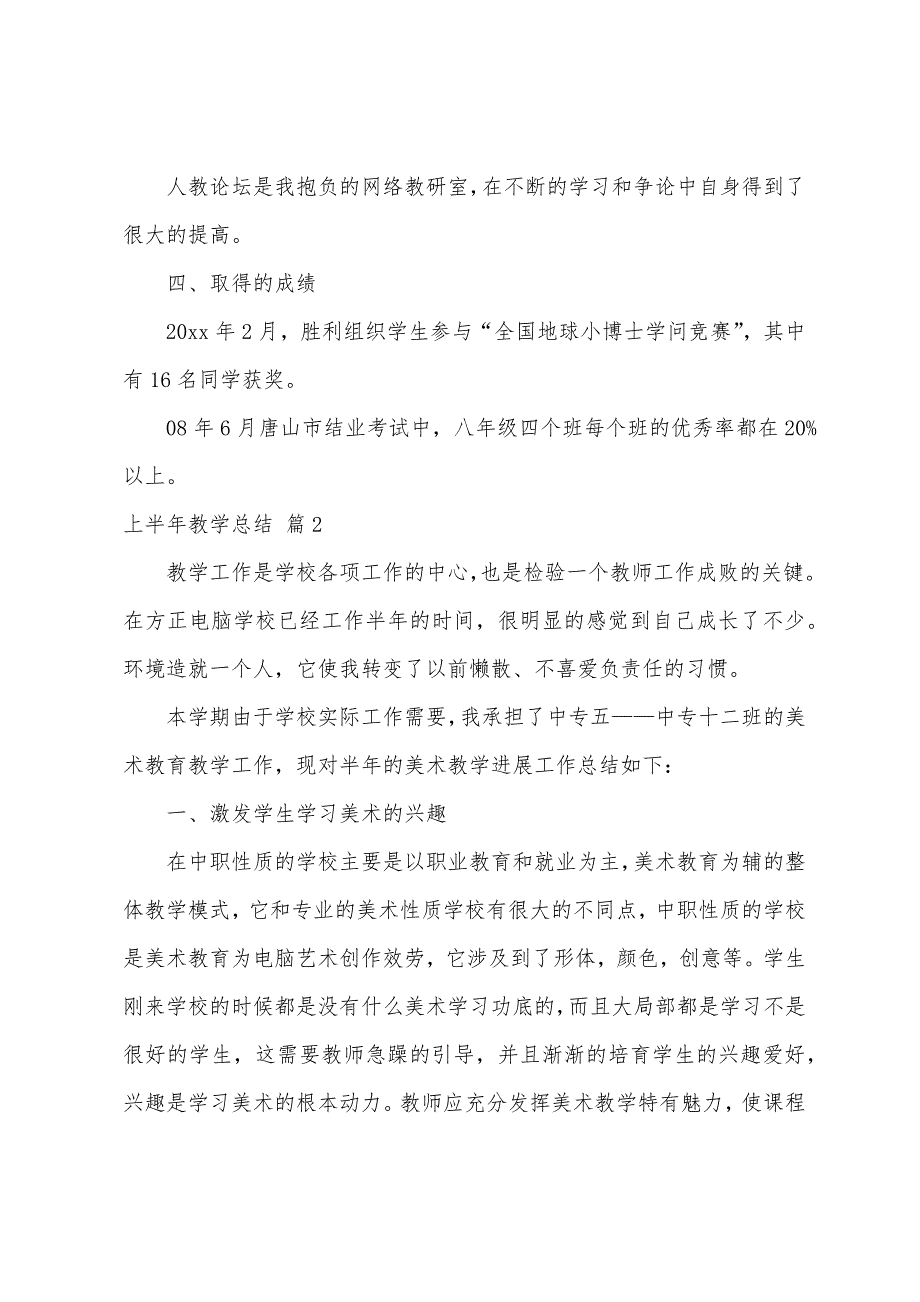 人教论坛是我抱负的网络教研室,在不断的学习和争论中自身得到了
很大的提高。
四、取得的成绩
20xx 年 2 月，胜利组织学生参与“全国地球小博士学问竞赛”，其中
有 16 名同学获奖。
08 年 6 月唐山市结业考试中，八年级四个班每个班的优秀率都在 20%
以上。
上半年教学总结 篇 2
教学工作是学校各项工作的中心,也是检验一个教师工作成败的关键。
在方正电脑学校已经工作半年的时间，很明显的感觉到自己成长了不少。
环境造就一个人，它使我转变了以前懒散、不喜爱负责任的习惯。
本学期由于学校实际工作需要,我承担了中专五——中专十二班的美
术教育教学工作，现对半年的美术教学进展工作总结如下：
一、激发学生学习美术的兴趣
在中职性质的学校主要是以职业教育和就业为主,美术教育为辅的整
体教学模式，它和专业的美术性质学校有很大的不同点，中职性质的学校
是美术教育为电脑艺术创作效劳，它涉及到了形体，颜色，创意等。学生
刚来学校的时候都是没有什么美术学习功底的,而且大局部都是学习不是
很好的学生，这需要教师急躁的引导，并且渐渐的培育学生的兴趣爱好，
兴趣是学习美术的根本动力。教师应充分发挥美术教学特有魅力，使课程